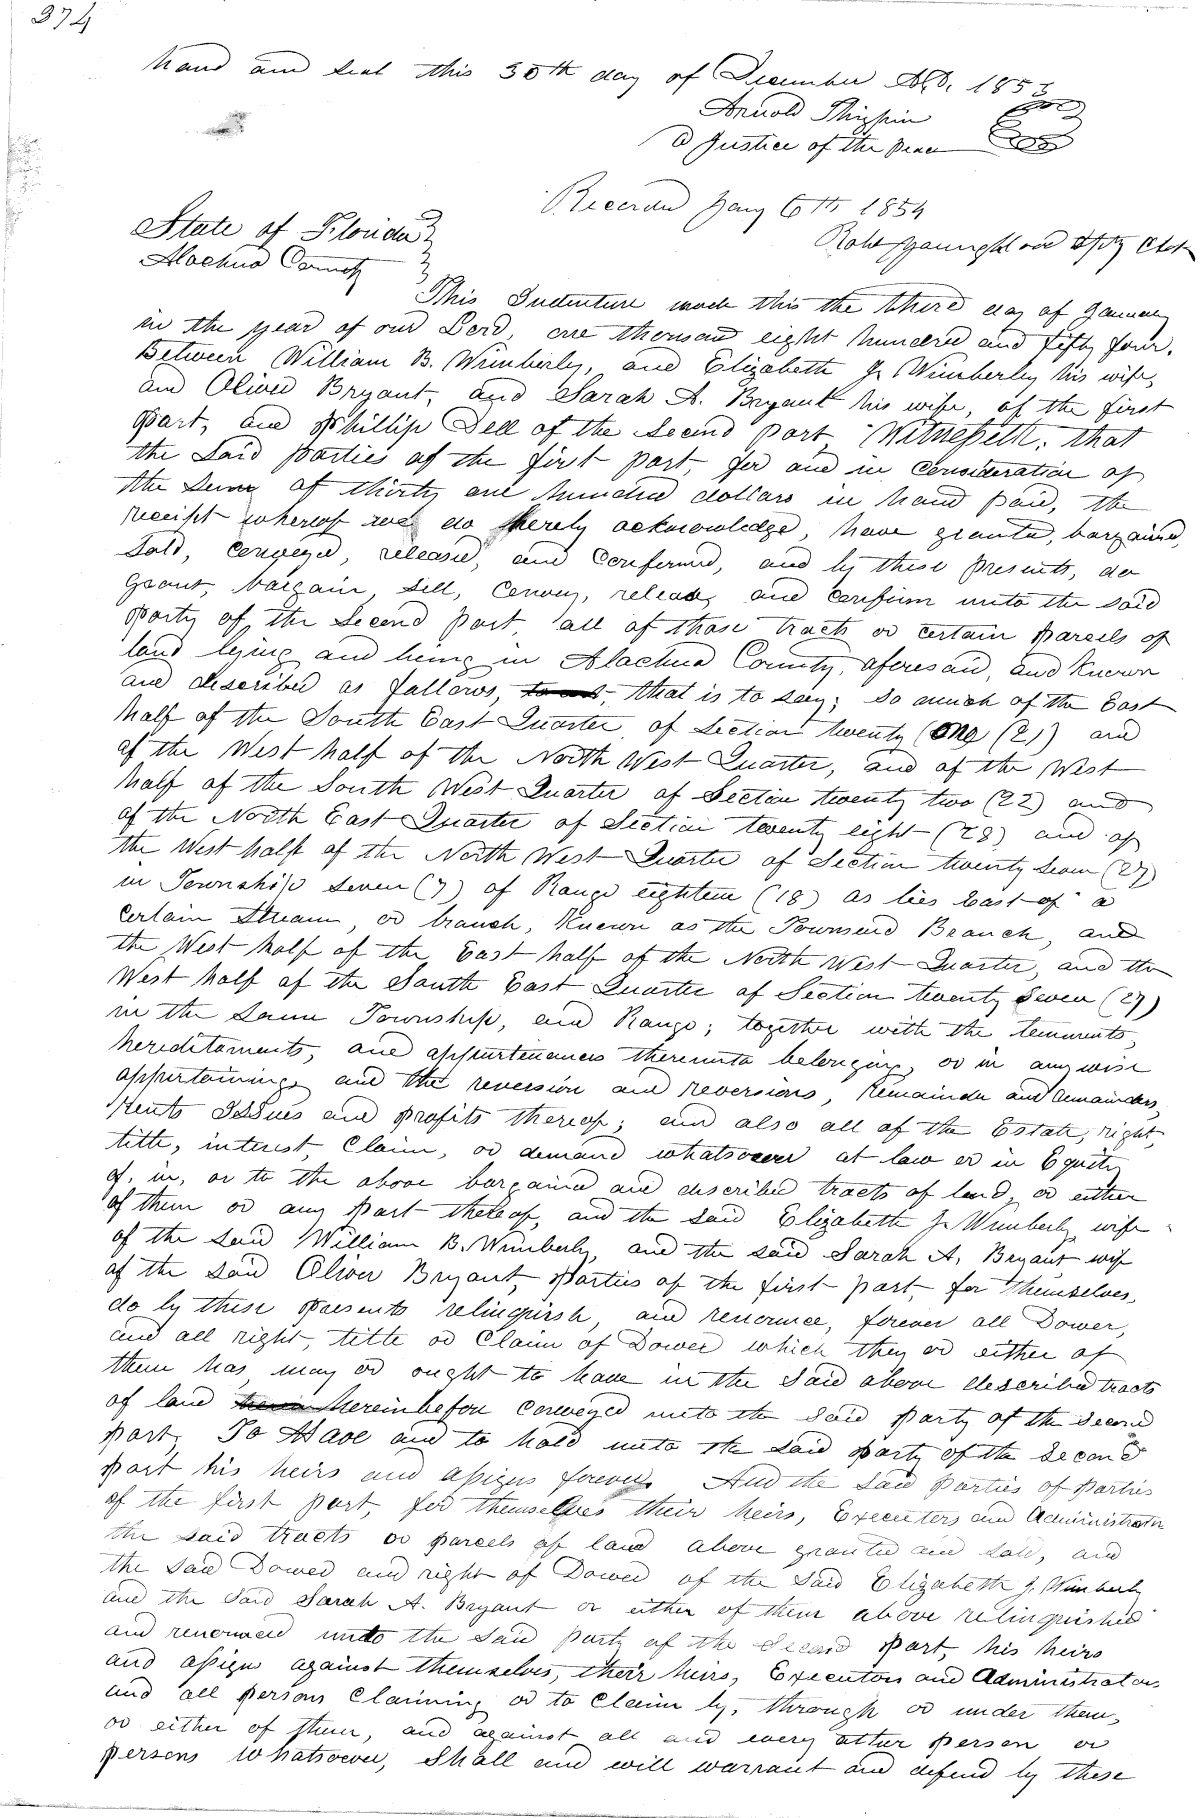 374
hand and seal this 30th day of December A.D. 1853
Arnold Thigpin
a Justice of the Peace
Recorded Jany 6th 1854
Robt Youngblood Dpty Clk
State of Florida
Alachua County
This Indenture made this the third day of January
in the year of our Lord, one thousand eight hundred and fifty four.
Between William B. Wimberly, and Elizabeth J. Wimberley his wife,
and Oliver Bryant, and Sarah A. Bryant his wife, of the first
part, and Phillip Dell of the Second part, Witnesseth, that
the Said parties of the first part, for and in consideration of
the Sum of thirty one hundred dollars in hand paid, the
receipt whereof we do hereby acknowledge, have granted, bargained,
Sold, conveyed, released, and Confirmed, and by these presents, do
grant, bargain, sell, convey, release, and confirm unto the said
Party of, the Second part, all of those tracts or certain parcels of
land lying and being in Alachua County, aforesaid, and Known
and described as fallows, that is to say; so much of the East
half of the South East Quarter, of Section twenty One (21) and
of the West half of the North West Quarter, and of the West
half of the South West Quarter of Section twenty two (22) and
of the North East Quarter of Section twenty eight (28) and of
the West half of the North West Quarter of Section twenty Seven (27)
in Township Seven (7) of Range eighteen (18) as lies East of a
certain Stream, or branch, Known as the Townsend Branch, and
the West half of the East half of the North West Quarter, and the
West half of the South East Quarter of Section twenty Seven (27)
in the Same Township, and Range; together with the tenements,
hereditaments, and appurtenances thereunto belonging, or in anywise
appertaining, and the reversion and reversions, remainder and remainders,
rents Issues and profits thereof; and also all of the Estate, right,
title, interest, Claim, or demand whatsoever at law or in Equity
of, in, or to the above bargained and described tracts of land, or either
of them or any part thereof, and the said Elizabeth J. Wimberly, wife
of the said William B. Wimberly, and the said Sarah A. Bryant wife
of the said Oliver Bryant, parties of the first part, for themselves,
do by these presents relinquish, and renounce, forever all Dower,
and all right, title or Claim of Dower which they or either of
them has, may or ought to have in the Said above described tracts
of land hereinbefore conveyed unto the said party of the second
part, To Have and to hold unto the said party of the second
part his heirs and assigns forever. And the said parties of parties
of the first part, for themselves their heirs, Executors and Administrators
the said tracts or parcels of land above granted and sold, and
the said Dower and right of Dower of the said Elizabeth J. Wimberly
and the said Sarah A. Bryant or either of them above relinquished
and renounced unto the said party of the second part, his heirs
and assigns against themselves, their heirs, Executors and Administrators
and all persons Claiming or to Claim by, through or under them,
or either of them, and against all and every other person or
persons whatsoever, Shall and will warrant and defend by these